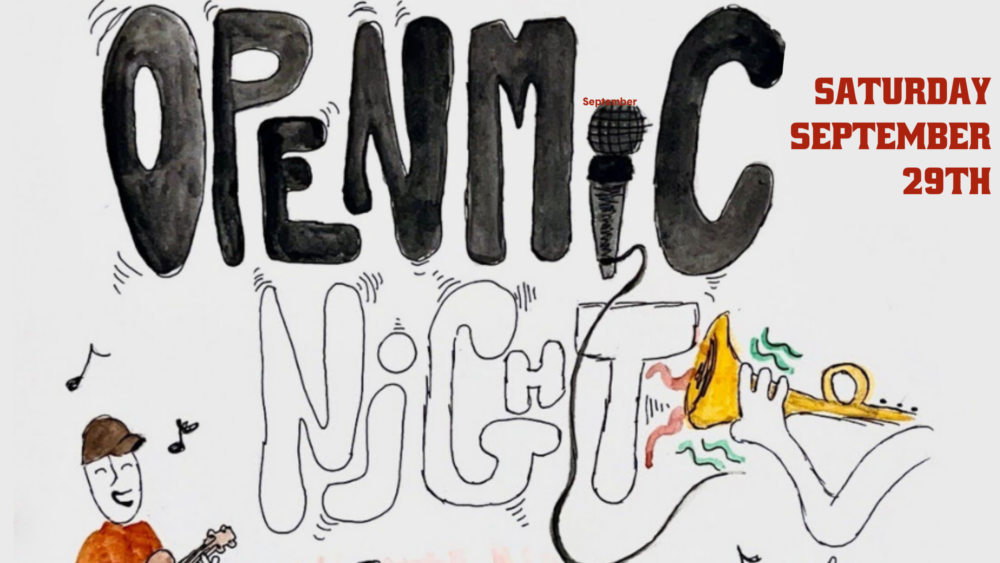 OPEN MiC
September
NiGHT
SATURDAY
SEPTEMBER
29TH